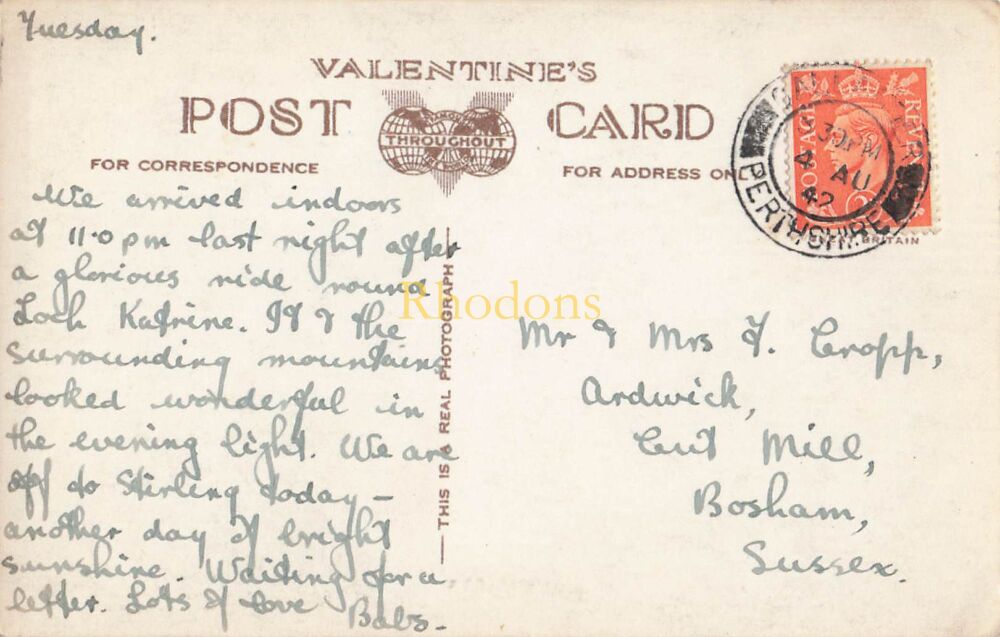 Tuesday.
VALENTINE'S
POST CARD
THROUGHOUT
FOR CORRESPONDENCE
FOR ADDRESS ONL
We arrived indoors
at 11.0 pm last night after
a glorious ride round
Loch Katrine. It & the
surrounding mountains
looked wonderful in
the evening light. We are
off to Stirling today —
another day of bright
sunshine. Waiting for a
letter. Lots of love Babs.
THIS IS A REAL PHOTOGRAPH
Rhodons
Mr & Mrs F. Cropp,
Ardwick,
Cut Mill,
Bosham,
Sussex.
POSTAGE REVENUE
PERTHSHIRE
4 AU
42
GREAT BRITAIN